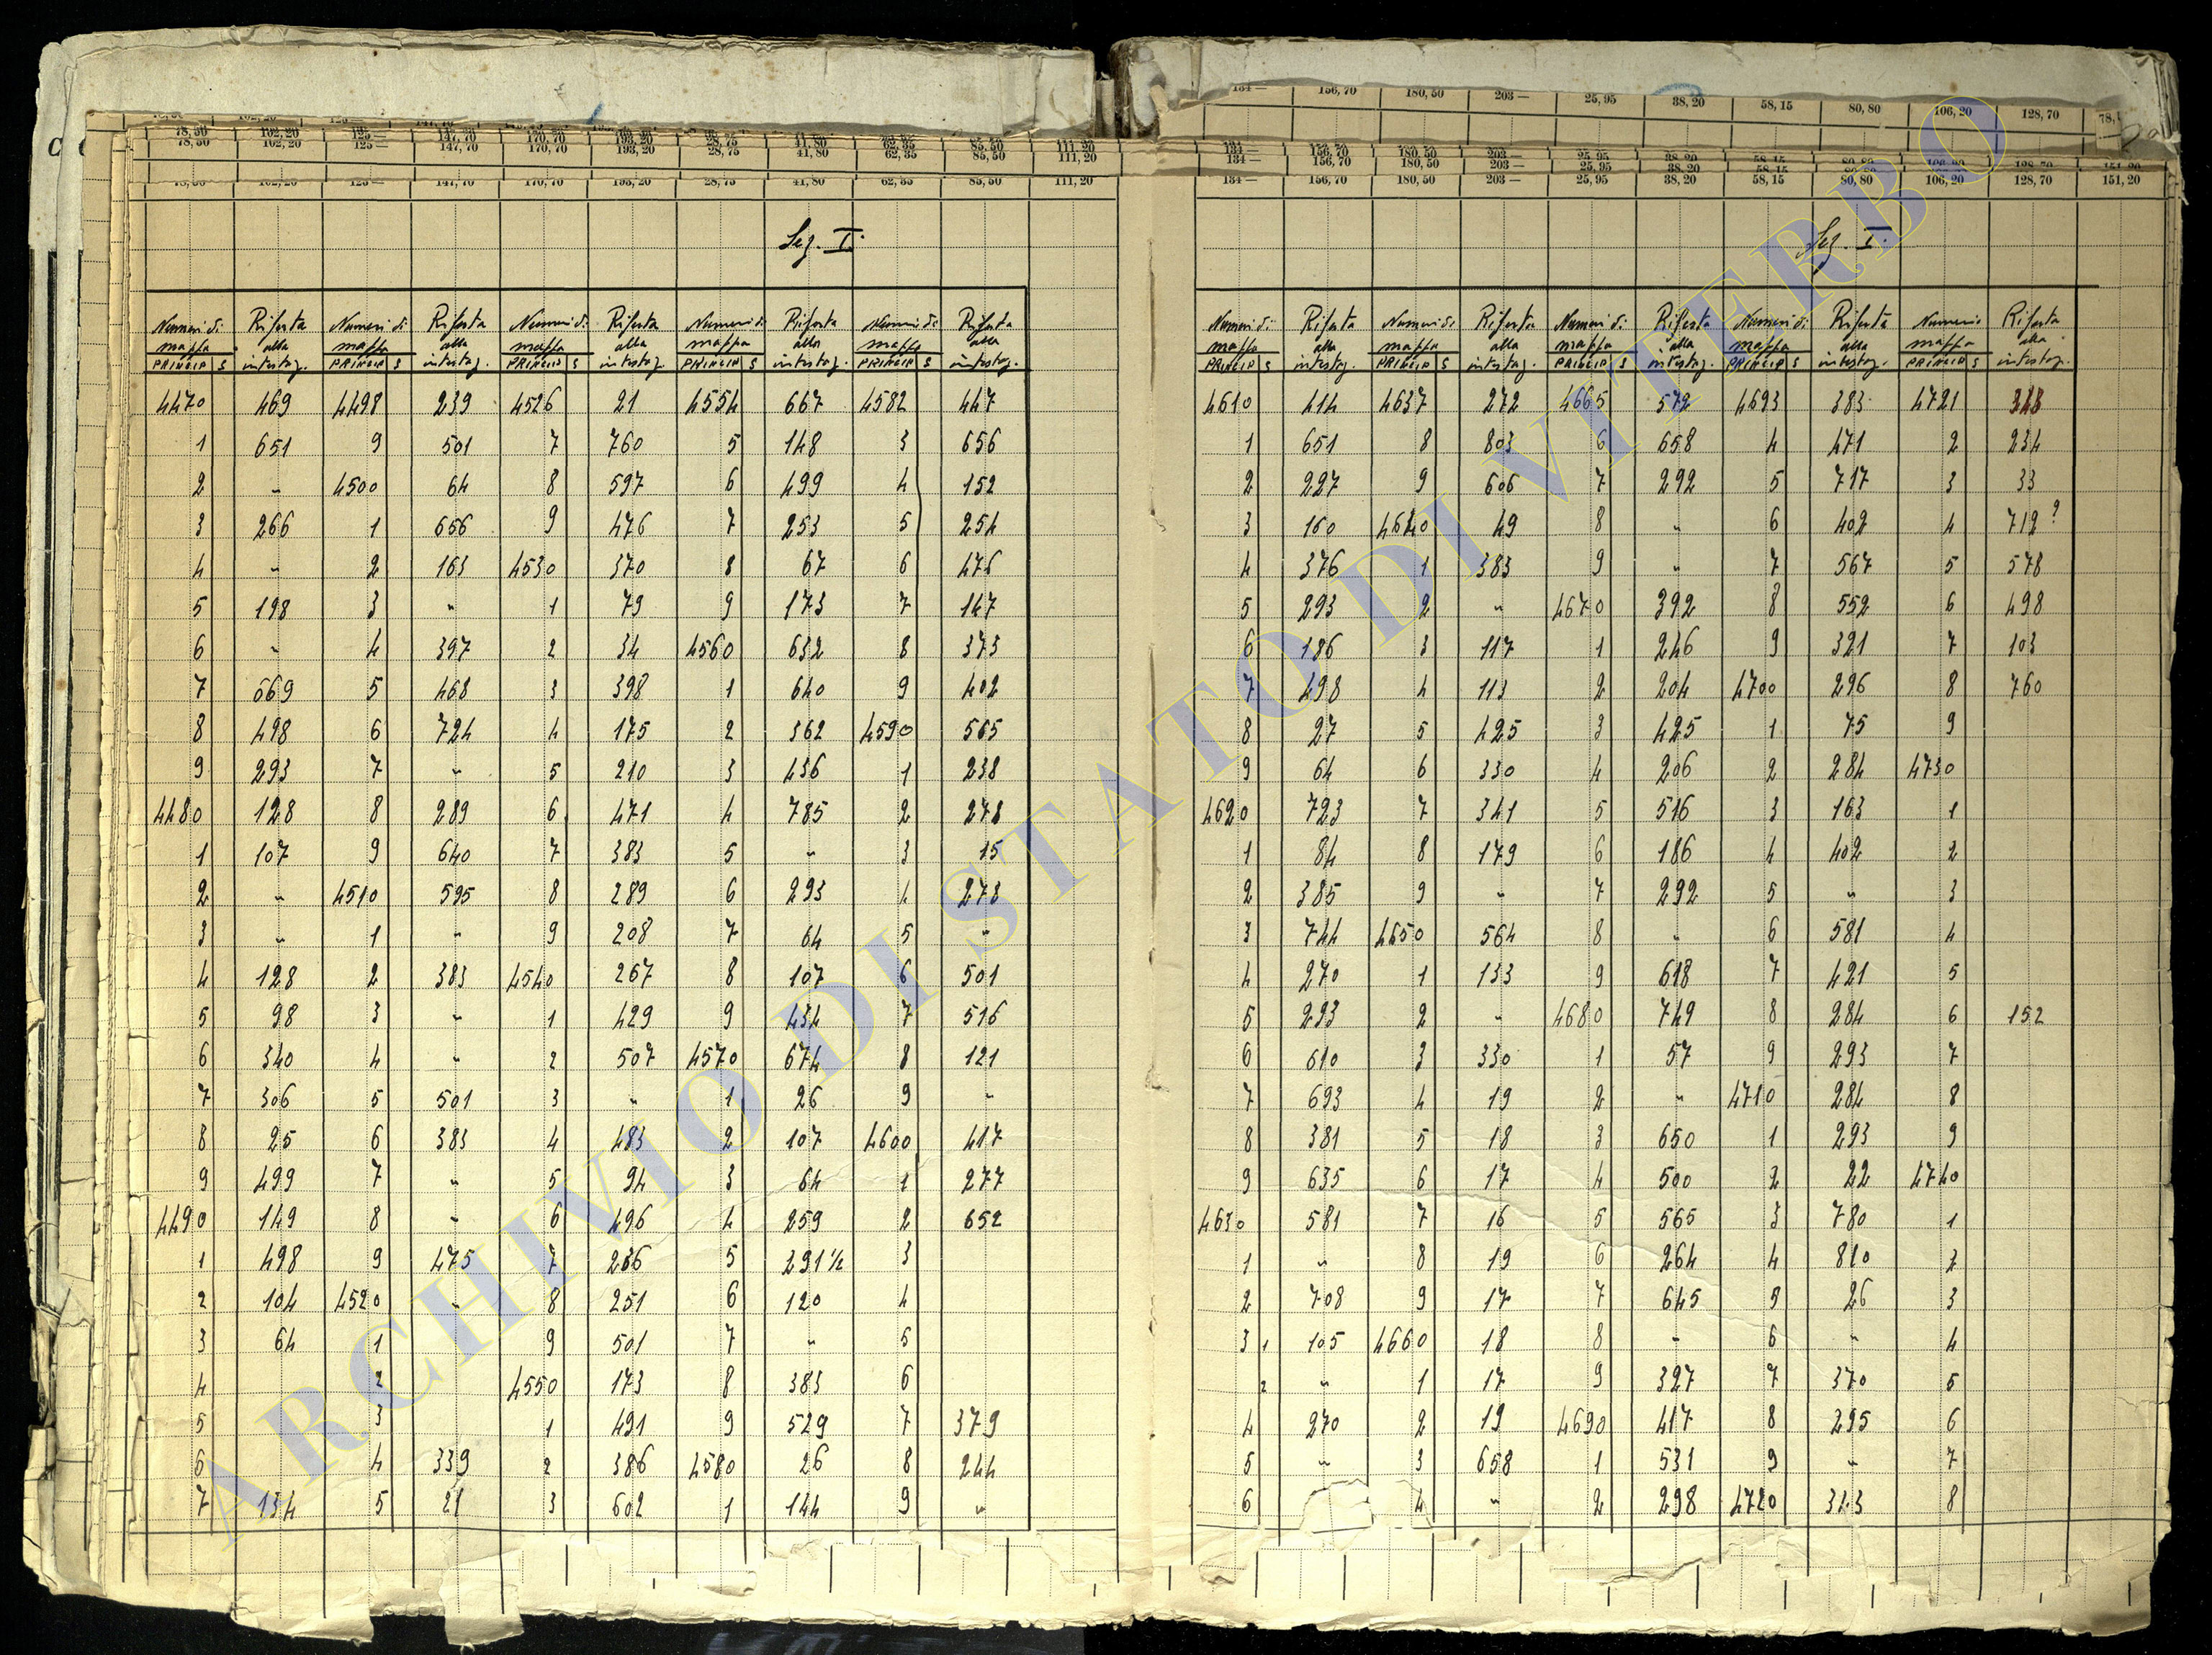 134 — 156,70 180,50 203 — 25,95 38,20 58,15 80,80 106,20 128,70
78,50 102,20 125 — 147,70 170,70 193,20 28,75 41,80 62,35 85,50 111,20
134 — 156,70 180,50 203 — 25,95 38,20 58,15 80,80 106,20 128,70 151,20
Sez. I.
Numeri di mappa Riferta alla intestaz. Numeri di mappa Riferta alla intestaz. Numeri di mappa Riferta alla intestaz. Numeri di mappa Riferta alla intestaz. Numeri di mappa Riferta alla intestaz.
PRINCIP S PRINCIP S PRINCIP S PRINCIP S PRINCIP S
4470 469 4498 239 4526 21 4554 667 4582 447
1 651 9 501 7 760 5 148 3 656
2 " 4500 64 8 597 6 499 4 152
3 266 1 656 9 476 7 253 5 254
4 " 2 163 4530 370 8 67 6 476
5 198 3 " 1 79 9 173 7 147
6 " 4 397 2 34 4560 632 8 373
7 569 5 468 3 398 1 640 9 402
8 498 6 724 4 175 2 362 4590 565
9 293 7 " 5 210 3 436 1 238
4480 128 8 289 6 471 4 785 2 278
1 107 9 640 7 383 5 " 3 15
2 " 4510 595 8 289 6 293 4 278
3 " 1 " 9 208 7 64 5 "
4 128 2 383 4540 267 8 107 6 501
5 98 3 " 1 429 9 434 7 516
6 340 4 " 2 507 4570 674 8 121
7 306 5 501 3 " 1 26 9 "
8 25 6 383 4 483 2 107 4600 417
9 499 7 " 5 94 3 64 1 277
4490 149 8 " 6 496 4 259 2 652
1 498 9 475 7 266 5 291½ 3
2 104 4520 " 8 251 6 120 4
3 64 1 9 501 7 " 5
4 2 4550 173 8 383 6
5 3 1 491 9 529 7 379
6 4 339 2 386 4580 26 8 244
7 134 5 21 3 602 1 144 9 "
Sez. I.
Numeri di mappa Riferta alla intestaz. Numeri di mappa Riferta alla intestaz. Numeri di mappa Riferta alla intestaz. Numeri di mappa Riferta alla intestaz. Numeri mappa Riferta alla intestaz.
PRINCIP S PRINCIP S PRINCIP S PRINCIP S PRINCIP S
4610 414 4637 272 4665 572 4693 383 4721 348
1 651 8 803 6 658 4 471 2 234
2 227 9 606 7 292 5 717 3 33
3 160 4640 49 8 " 6 402 4 712 ?
4 376 1 383 9 " 7 567 5 578
5 293 2 " 4670 392 8 552 6 498
6 186 3 117 1 246 9 321 7 103
7 498 4 113 2 204 4700 296 8 760
8 27 5 425 3 425 1 75 9
9 64 6 330 4 206 2 284 4730
4620 723 7 341 5 516 3 163 1
1 84 8 179 6 186 4 402 2
2 385 9 " 7 292 5 " 3
3 744 4650 564 8 " 6 581 4
4 270 1 133 9 618 7 421 5
5 293 2 " 4680 749 8 284 6 152
6 610 3 330 1 57 9 293 7
7 693 4 19 2 " 4710 284 8
8 381 5 18 3 650 1 293 9
9 635 6 17 4 500 2 22 4740
4630 581 7 16 5 565 3 780 1
1 " 8 19 6 264 4 810 2
2 708 9 17 7 645 5 26 3
3 1 105 4660 18 8 " 6 " 4
2 " 1 17 9 327 7 370 5
4 270 2 19 4690 417 8 295 6
5 " 3 658 1 531 9 " 7
6 4 " 2 298 4720 313 8
ARCHIVIO DI STATO DI VITERBO